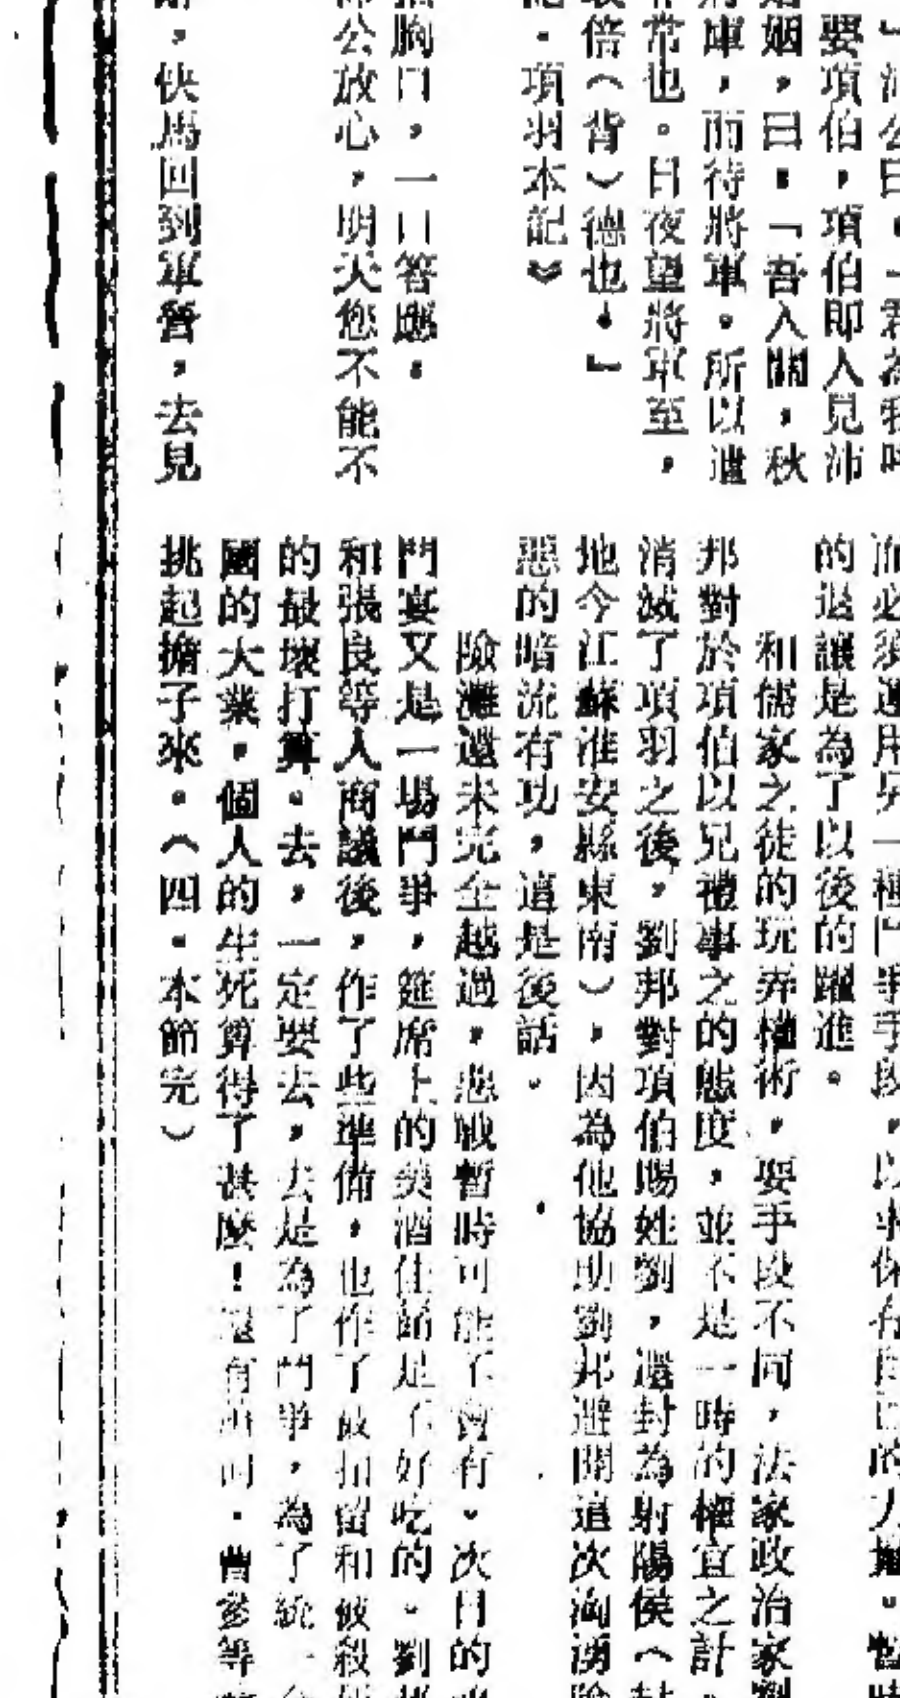 』沛公曰：「君為我呼
要項伯，項伯即入見沛
姻，曰：「吾入關，秋
庫，而待將軍。所以遣
常也。日夜望將軍至，
倍（背）德也。』
．項羽本記》
胸口，一口答應。
公放心，明天您不能不
，快馬回到軍營，去見
而必須運用另一種鬥爭手段，以求保存自己的力量。暫時
的退讓是為了以後的躍進。
和儒家之徒的玩弄權術，耍手段不同，法家政治家劉
邦對於項伯以兄禮事之的態度，並不是一時的權宜之計，
消滅了項羽之後，劉邦對項伯賜姓劉，還封為射陽侯（封
地今江蘇淮安縣東南），因為他協助劉邦避開這次洶湧險
惡的暗流有功，這是後話。
險灘還未完全越過，惡戰暫時可能不會有。次日的
門宴又是一場鬥爭，筵席上的美酒佳餚是不好吃的。劉邦
和張良等人商議後，作了些準備，也作了被扣留和被殺
的最壞打算。去，一定要去，去是為了鬥爭，為了統一
國的大業，個人的生死算得了甚麼！還有蕭何、曹參等
挑起擔子來。（四．本節完）